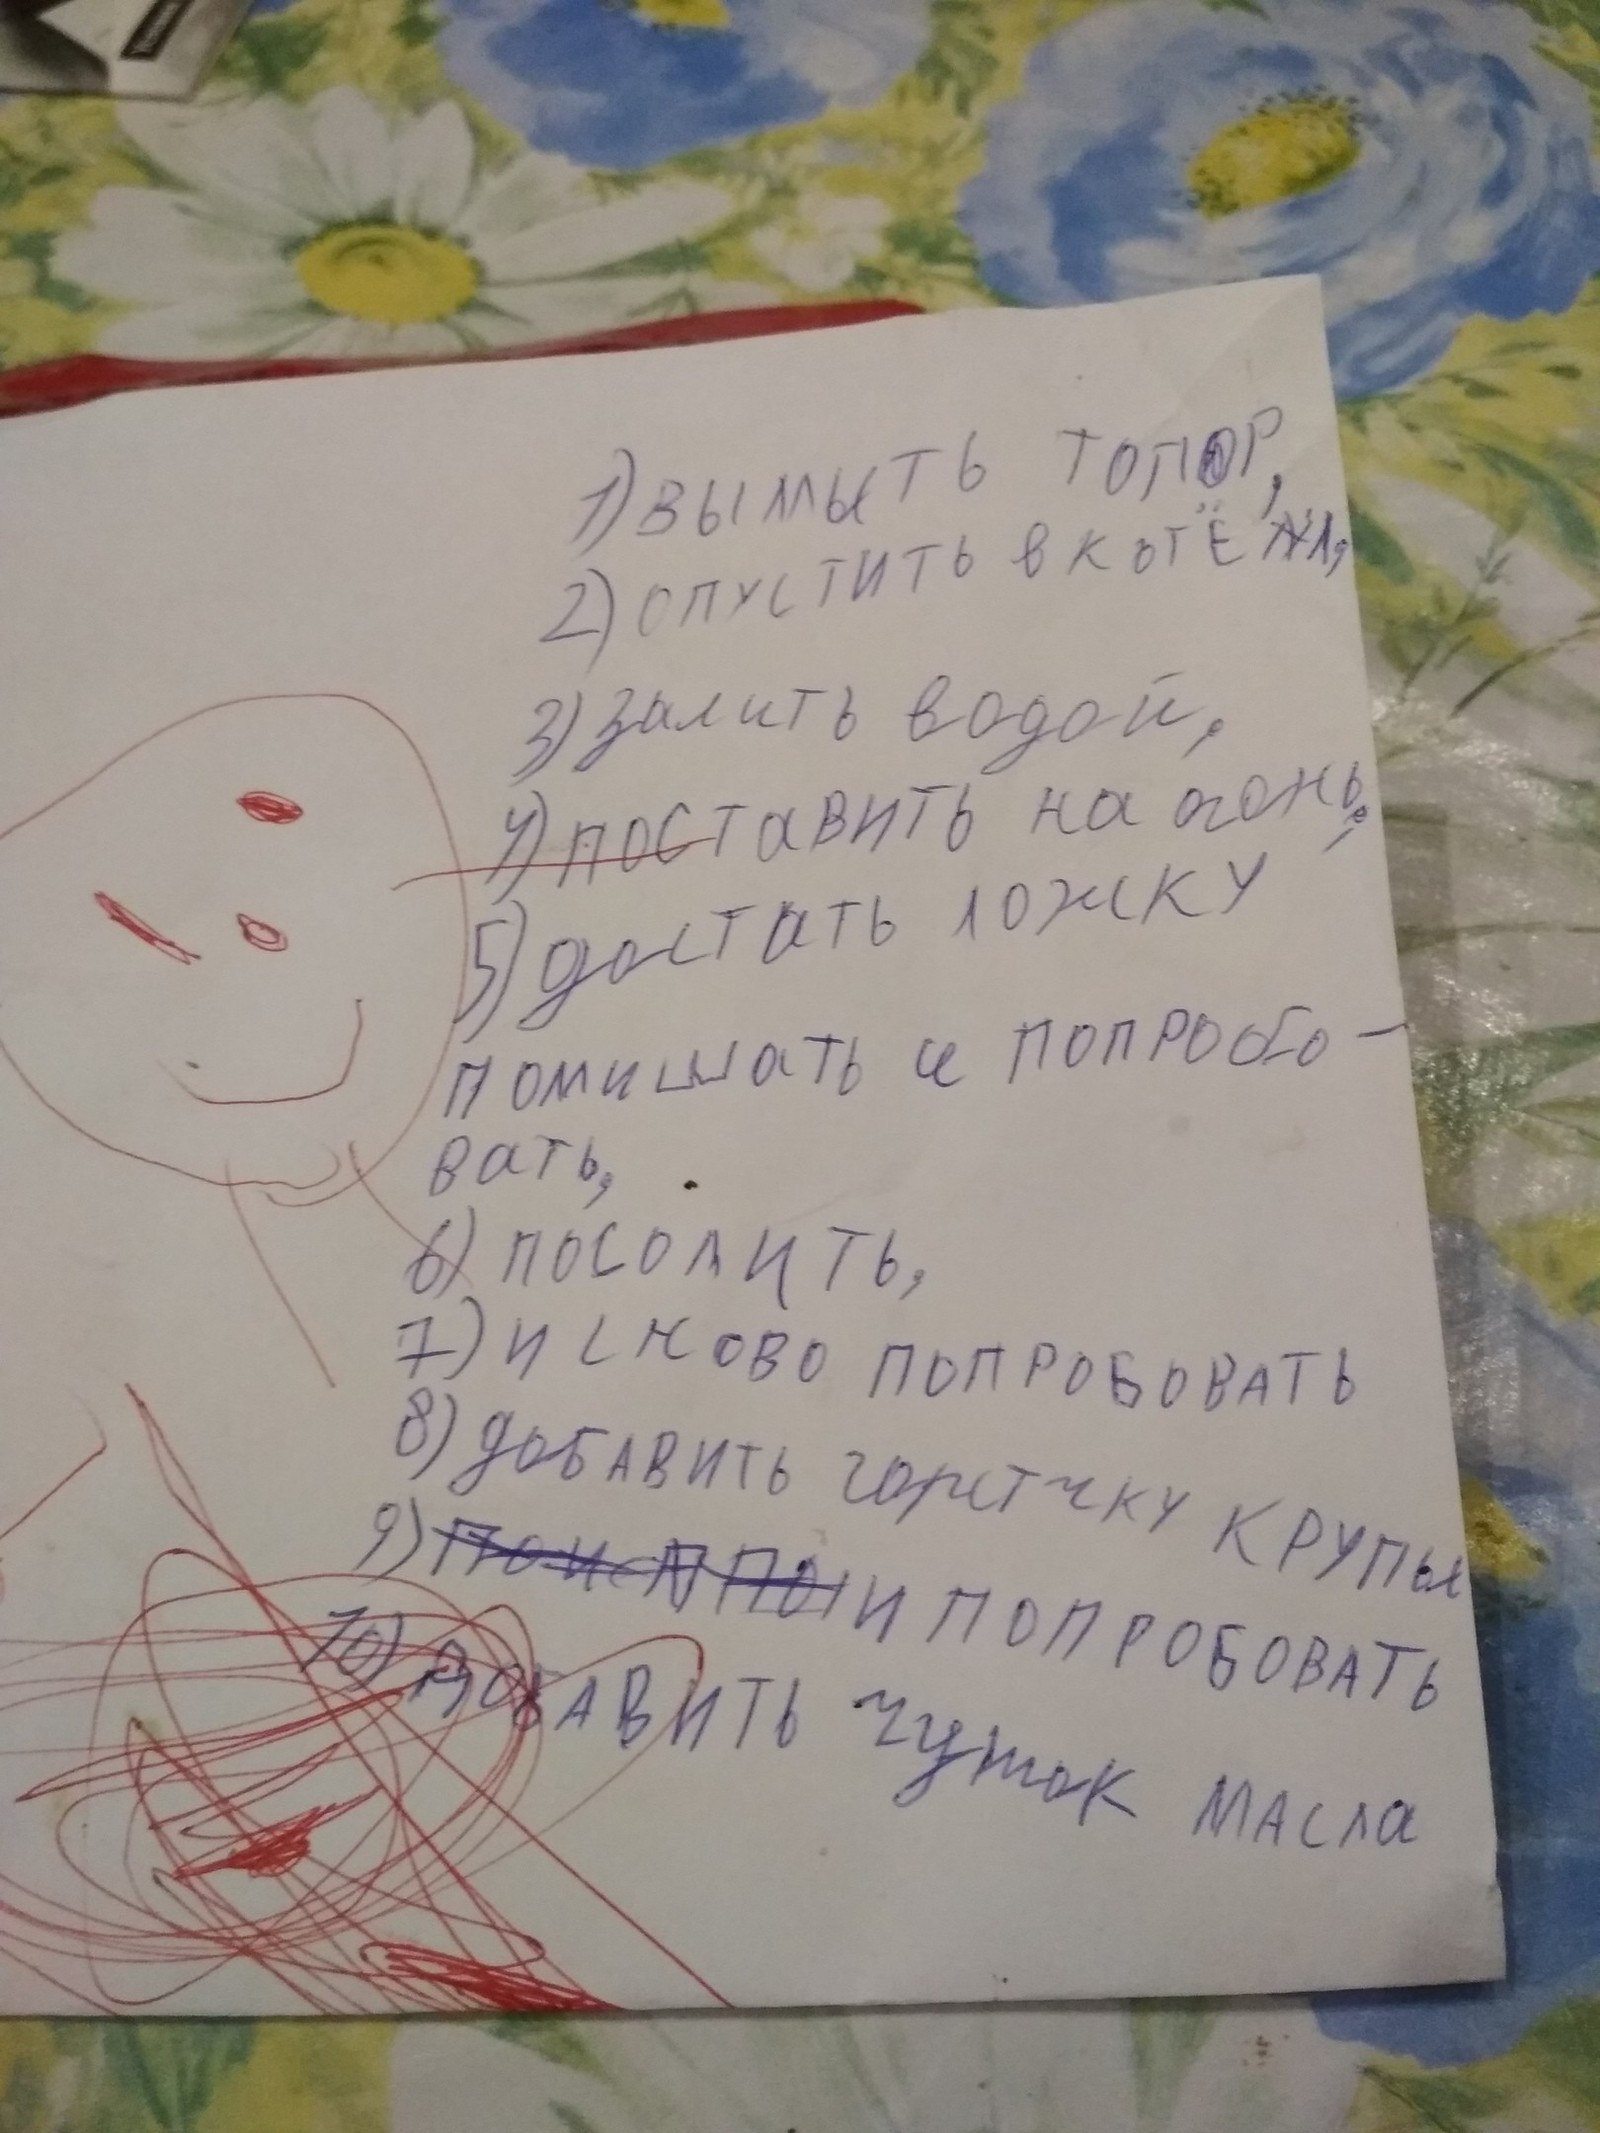 1) вымыть топор,
2) опустить в котёл,
3) залить водой,
4) поставить на огонь,
5) достать ложку
помишать и попробо-
вать,
6) посолить,
7) и сново попробовать
8) добавить горстчку крупы
9) и попробовать
10) добавить чуток масла